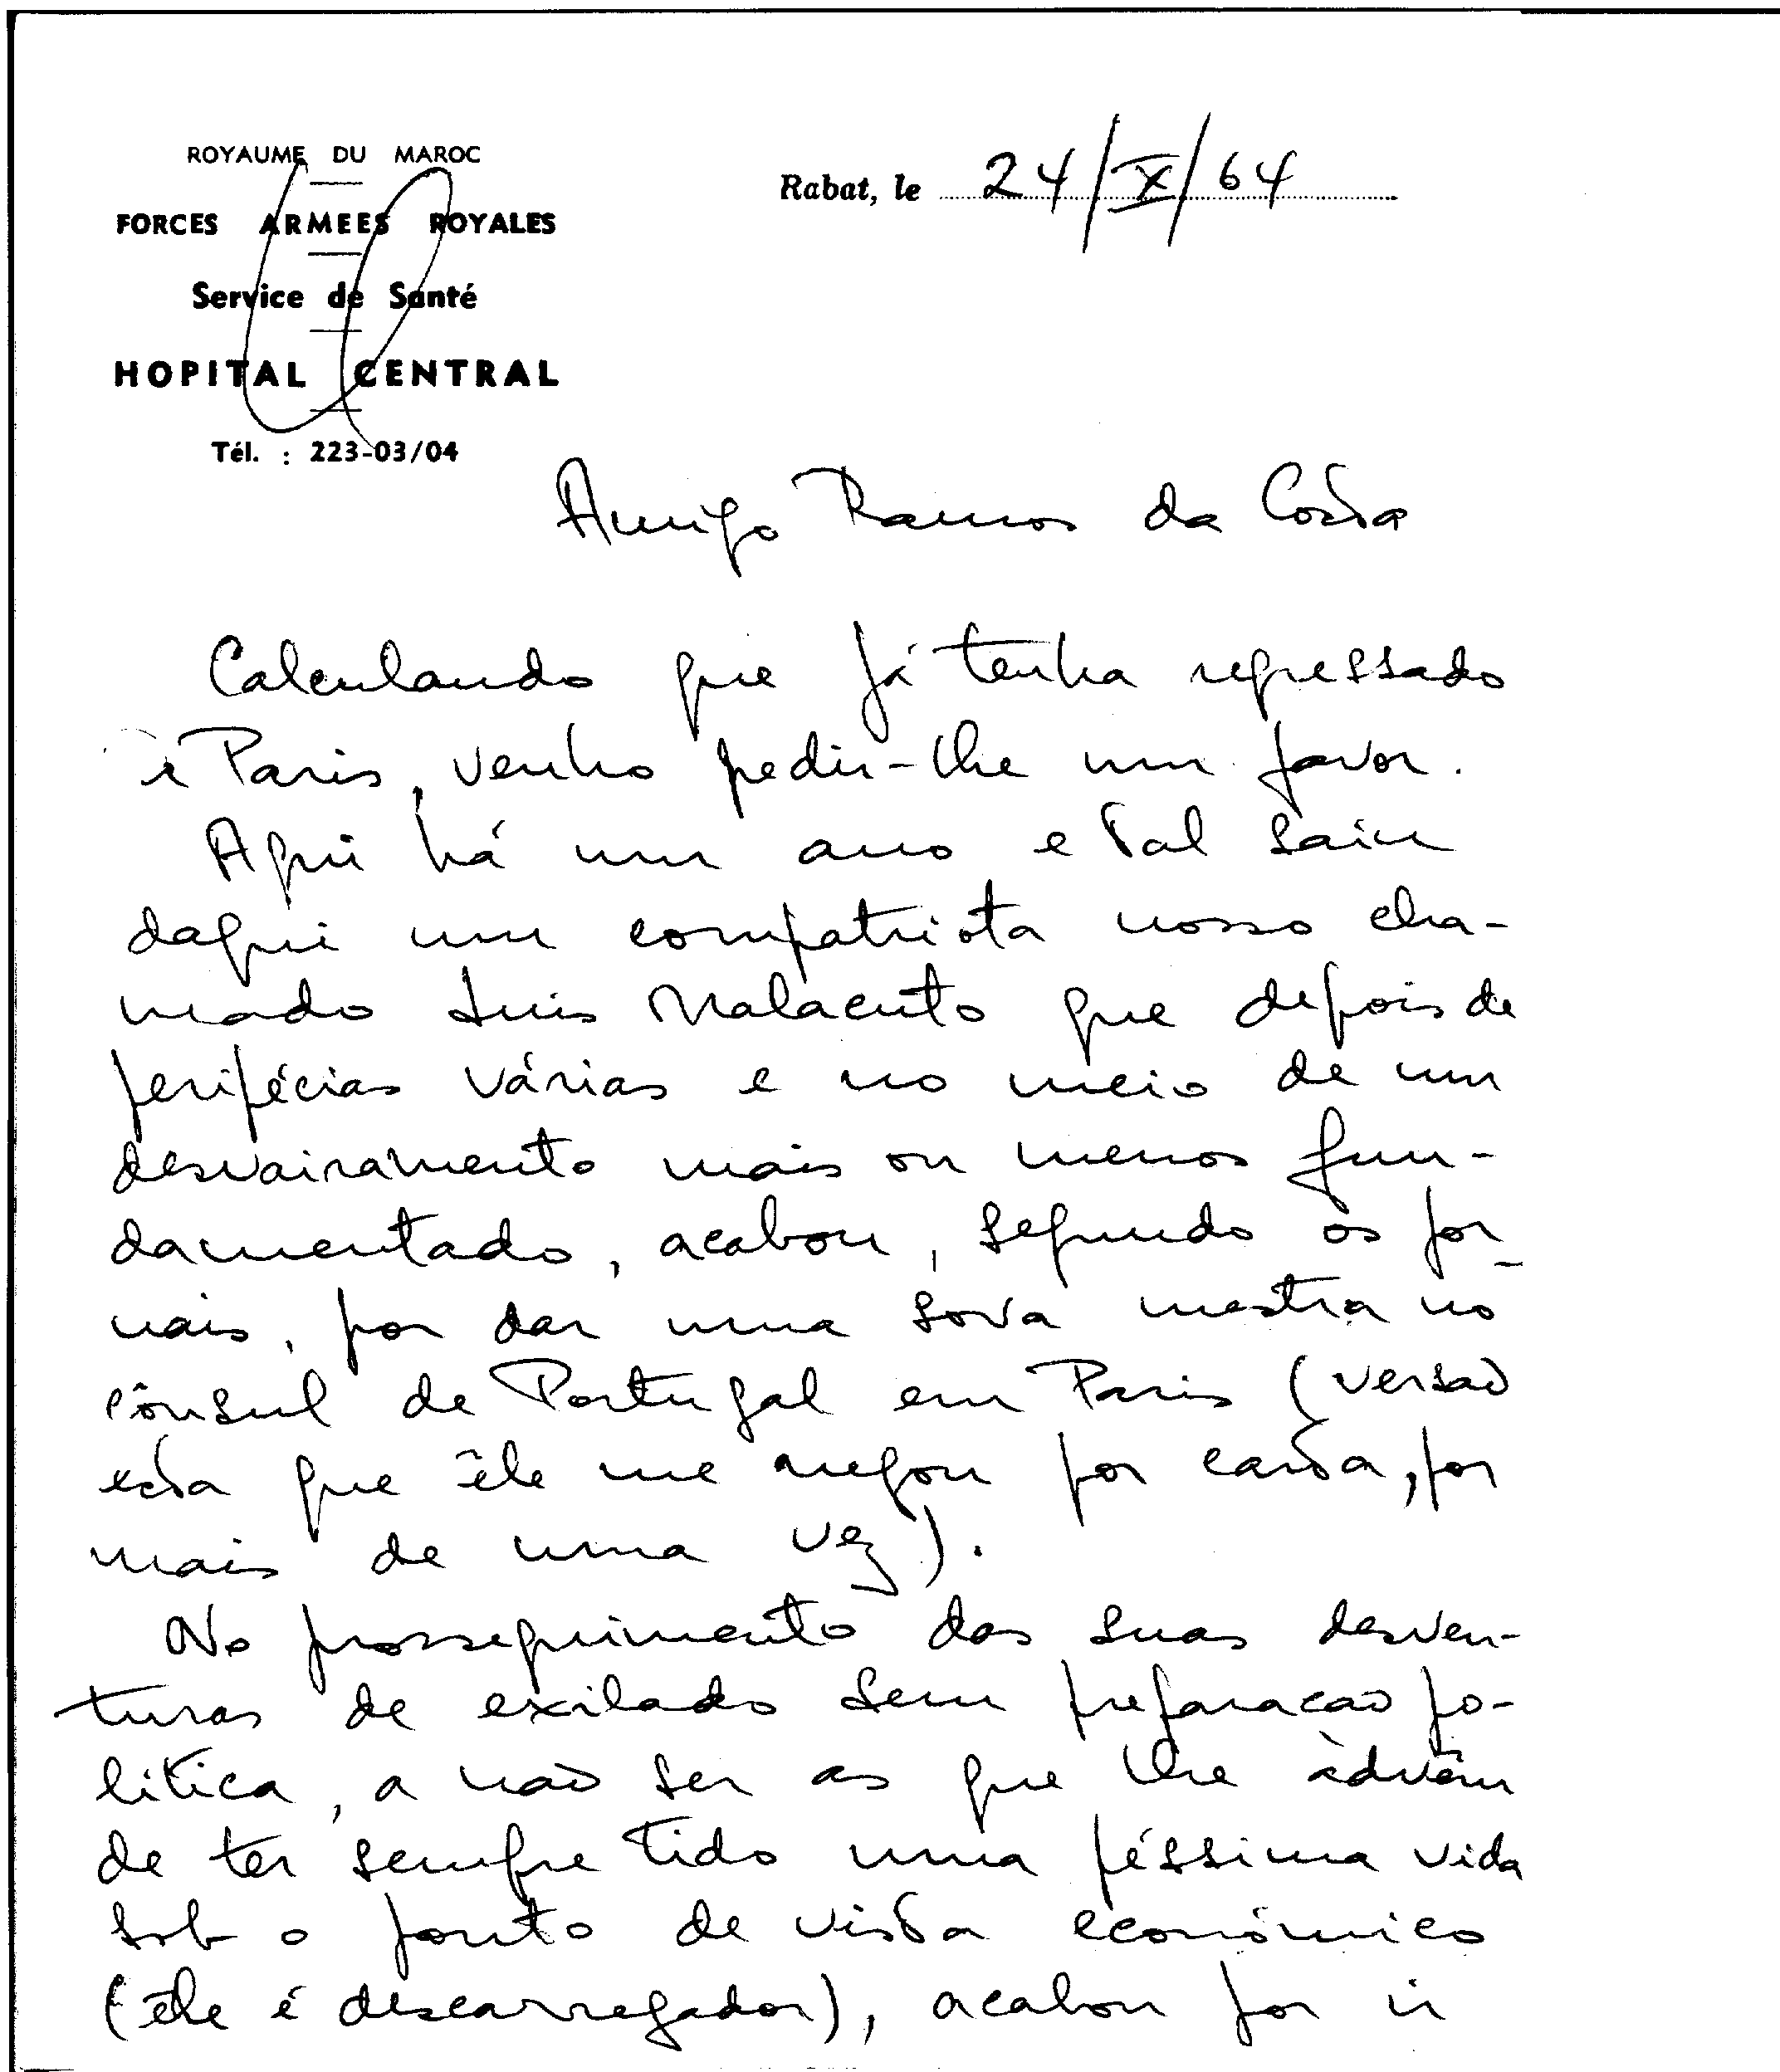 ROYAUME DU MAROC
Rabat, le 24/X/64
FORCES ARMEES ROYALES
Service de Santé
HOPITAL CENTRAL
Tél. : 223-03/04
Amigo Ramos da Costa
Calculando que já tenha regressado
a Paris, venho pedir-lhe um favor.
Aqui há um ano e tal saiu
daqui um compatriota nosso cha-
mado Luis Malacuto que depois de
peripécias várias e no meio de um
desvairamento mais ou menos fun-
damentado, acabou, segundo os jor-
nais, por dar uma sova mestra no
cônsul de Portugal em Paris (versão
esta que êle me negou por carta, por
mais de uma vez).
No prosseguimento das suas desven-
turas de exilado sem preparacão po-
lítica, a não ser as que lhe advêm
de ter sempre tido uma péssima vida
sob o ponto de vista económico
(êle é descarregador), acabou por ir